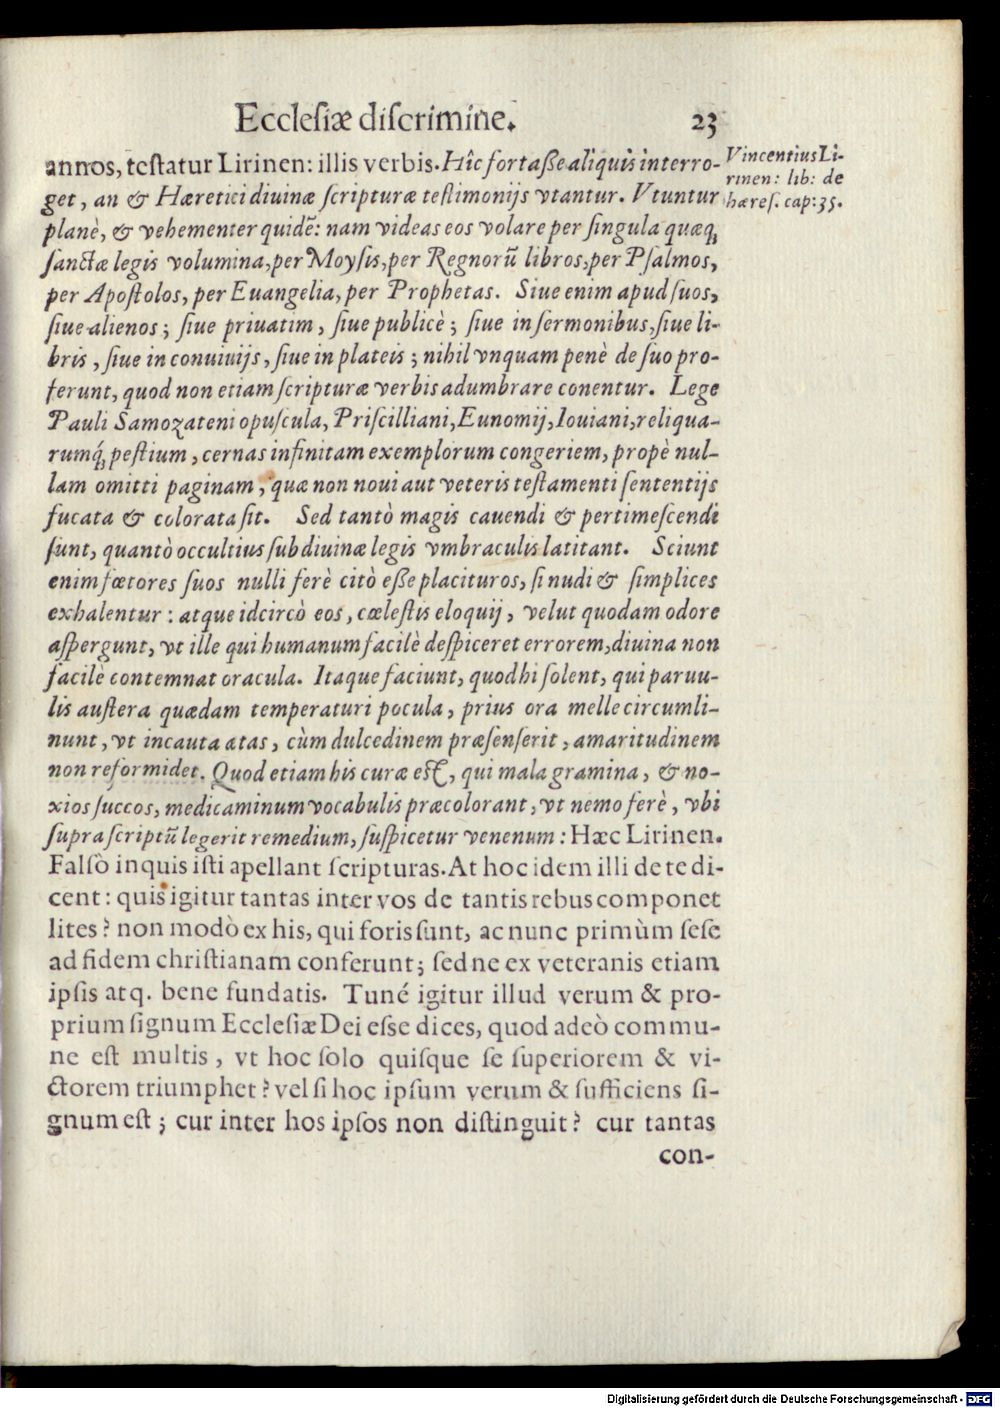 Ecclesiæ discrimine. 23
annos, testatur Lirinen: illis verbis. Hîc fortaße aliquis interro-
get, an & Hæretici diuinæ scripturæ testimonijs vtantur. Vtuntur
planè, & vehementer quidē: nam videas eos volare per singula quæq́;
sanctæ legis volumina, per Moysis, per Regnorū libros, per Psalmos,
per Apostolos, per Euangelia, per Prophetas. Siue enim apud suos,
siue alienos; siue priuatim, siue publicè; siue in sermonibus, siue li-
bris, siue in conuiuijs, siue in plateis; nihil vnquam penè de suo pro-
ferunt, quod non etiam scripturæ verbis adumbrare conentur. Lege
Pauli Samozateni opuscula, Priscilliani, Eunomij, Iouiani, reliqua-
rumq́; pestium, cernas infinitam exemplorum congeriem, propè nul-
lam omitti paginam, quæ non noui aut veteris testamenti sententijs
fucata & colorata sit. Sed tantò magis cauendi & pertimescendi
sunt, quantò occultius sub diuinæ legis vmbraculis latitant. Sciunt
enim fœtores suos nulli ferè citò eße placituros, si nudi & simplices
exhalentur: atque idcircò eos, cælestis eloquij, velut quodam odore
aspergunt, vt ille qui humanum facilè despiceret errorem, diuina non
facilè contemnat oracula. Itaque faciunt, quod hi solent, qui paruu-
lis austera quædam temperaturi pocula, prius ora melle circumli-
nunt, vt incauta ætas, cùm dulcedinem præsenserit, amaritudinem
non reformidet. Quod etiam his curæ est, qui mala gramina, & no-
xios succos, medicaminum vocabulis præcolorant, vt nemo ferè, vbi
supra scriptū legerit remedium, suspicetur venenum: Hæc Lirinen.
Falsò inquis isti apellant scripturas. At hoc idem illi de te di-
cent: quis igitur tantas inter vos de tantis rebus componet
lites? non modò ex his, qui foris sunt, ac nunc primùm sese
ad fidem christianam conferunt; sed ne ex veteranis etiam
ipsis atq. bene fundatis. Tuné igitur illud verum & pro-
prium signum Ecclesiæ Dei esse dices, quod adeò commu-
ne est multis, vt hoc solo quisque se superiorem & vi-
ctorem triumphet? vel si hoc ipsum verum & sufficiens si-
gnum est; cur inter hos ipsos non distinguit? cur tantas
con-
Vincentius Li-
rinen: lib: de
hæres. cap: 35.
Digitalisierung gefördert durch die Deutsche Forschungsgemeinschaft - DFG